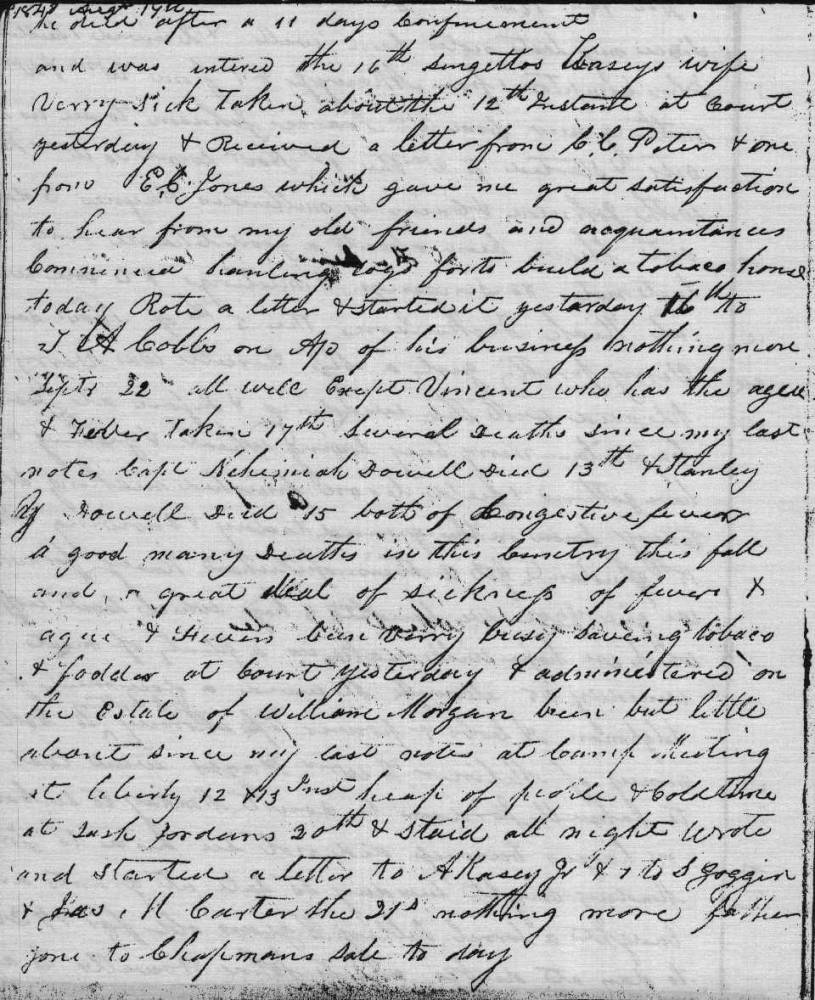 1848 Augt 19th
he died after a 11 days Confinement
and was intered the 16th Singettos Kaseys wife
Verry Sick Taken about the 12th Instant at Court
yesterday & Received a letter from C.C. Peters & one
from E.C. Jones which gave me great satisfaction
to hear from my old friends and acquaintances
Commenced hauling logs for to build a tobaco house
today Rote a letter & started it yesterday 16th to
J A Cobbs on Ap of his business nothing more
Septr 22 all well Exept Vincent who has the ague
& Fever taken 17th Several Deaths since my last
notes Capt Nehemiah Dowell Died 13th & Stanley
Dowell Died 15 both of Congestive fever
a good many Deaths in this Cuntry this fall
and a great deal of sickness of fever &
ague & Fevers been Verry busy saveing tobaco
& fodder at Court yesterday & administered on
the Estate of William Morgan been but little
about since my last notes at Camp Meeting
at liberty 12 & 13 Inst heap of people & Cold time
at Jordans 20th & Staid all night Wrote
and Started a letter to A Kasey Jr & 1 to S Goggin
& Jas M Carter the 21st nothing more father
gone to Chapmans Sale to day